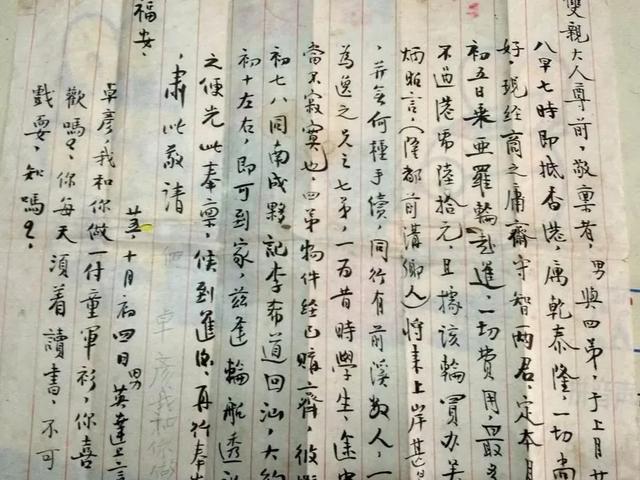 雙親大人尊前，敬稟者，男與四弟，于上月廿
八早七時即抵香港，寓乾泰隆，一切尚
好，現经商之庸齋守智兩君，定本月
初五日乘亜羅輪赴進，一切費用最多
不過港帋陸拾元，且據該輪買办吴
炳昭言，（隆都前溝鄉人）將来上岸甚
，并無何種手續，同行有前溪数人，一
為逸之兄之七弟，一为昔時學生，途中
當不寂寞也，四弟物件经已購齊，彼
初七八同南成夥記李希道回汕，大約
初十左右，即可到家，兹逢輪船透
之便光此奉稟，候到進後，再行奉
，肅此敬請
福安，
英，十月初四日男英達上言
卓彦，我和你做一付童軍衫，你喜
歡嗎？，你每天須着讀書，不可
戲耍，知嗎？，